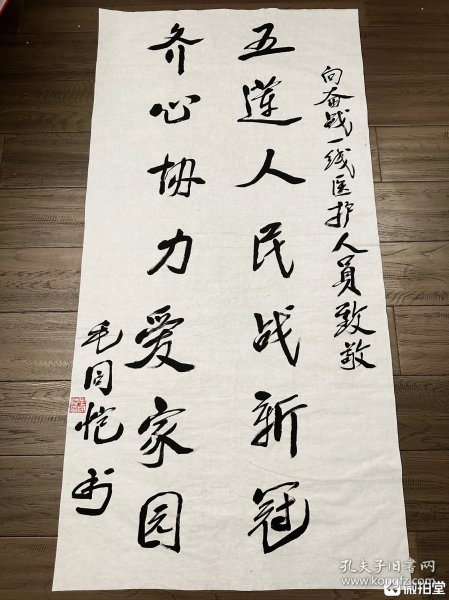 向奋战一线医护人员致敬
五莲人民战新冠
齐心协力爱家园
毛同恺书
孔夫子旧书网
www.kongfz.com
微拍堂